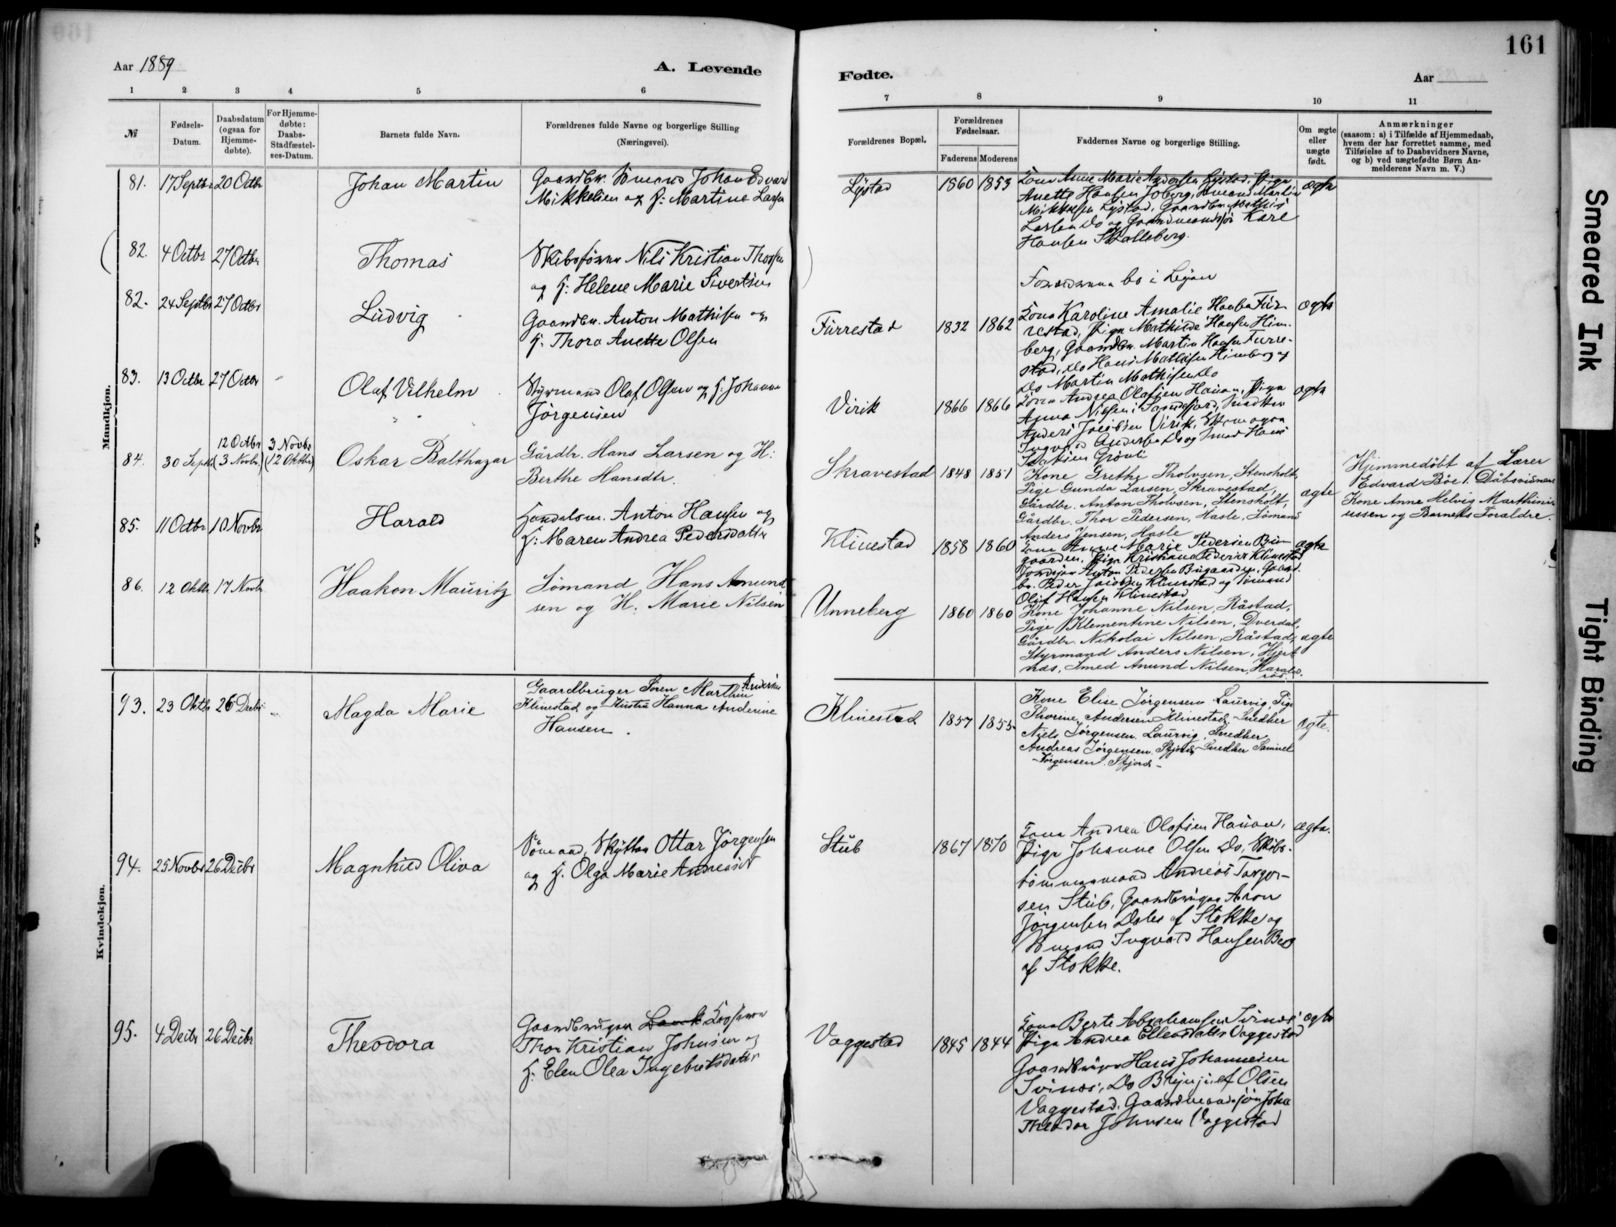 161
Aar 1889
A. Levende
Fødte.
Aar
1 2 3 4 5 6 7 8 9 10 11
№
Fødsels-Datum.
Daabsdatum (ogsaa for Hjemme-døbte).
For Hjemme-døbte: Daabs-Stadfæstel-ses-Datum.
Barnets fulde Navn.
Forældrenes fulde Navne og borgerlige Stilling (Næringsvei).
Forældrenes Bopæl.
Forældrenes Fødselsaar.
Faderens Moderens
Faddernes Navne og borgerlige Stilling.
Om ægte eller uægte født.
Anmærkninger
(saasom: a) i Tilfælde af Hjemmedaab, hvem der har forrettet samme, med Tilføielse af to Daabsvidners Navne, og b) ved uægtefødte Børn An-melderens Navn m. V.)
Mandkjøn.
81. 17 Septbr 20 Octbr Johan Martin
Gaardbr. Sømand Johan Edvard
Mikkelsen og H: Martine Larsen
Lystad 1860 1853
Kone Anne Marie Andersen Lystad, Pige
Anette Hansen Joberg, Sømand Martin
Mikkelsen Lystad, Gaardbr. Mathis
Larsen Do og Gaardmandssøn Karl
Hansen Skalleberg.
ægte
82. 4 Octbr 27 Octbr Thomas
Skibsfører Nils Kristian Thorsen
og H: Helene Marie Sivertsen
Forældrene bo i
82. 24 Septbr 27 Octbr Ludvig
Gaardbr. Anton Mathisen og
H. Thora Anette Olsen
Furrestad 1832 1862
Kone Karoline Amalie Haaba Fur-
restad, Pige Mathilde Hansen Him-
berg, Gaardbr. Martin Hansen Furre-
stad, do Hans Mathisen Himberg og
Do Martin Mathisen Do
ægte
83. 13 Octbr 27 Octbr Olaf Vilhelm
Styrmand Olaf Olsen og H. Johanne
Jörgensen
Virik 1866 1866
Kone Andrea Olafsen Hauan, Pige
Anna Nilsen i Sandefjord, Snedker
Anders Jacobsen Virik,
Ingvald Andersen Do og Smed Hans
ægte
84. 30 Septbr 12 Octbr (3 Novbr) 3 Novbr (12 Oktbr) Oskar Balthazar
Gårdbr. Hans Larsen og H:
Berthe Hansdtr.
Skravestad 1848 1851
Kone Grethe Tholvsen, Stensholt,
Pige Gunda Larsen, Skravestad,
Gårdbr. Anton Tholvsen, Stensholt,
Gårdbr. Thor Pedersen, Hasle, Sømand
Anders Jensen, Hasle
ægte
Hjemmedöbt af Lærer
Edvard Böe. Dåbsvidnere
Kone Anne Helvig Marthinu-
ussen og Barnets Foraldre.
85. 11 Octbr 10 Novbr Harald
Handelsm. Anton Hansen og
H: Maren Andrea Pedersdatter
Klinestad 1858 1860
Kone Anne Marie Pedersen Bu-
gaarden, Pige Kristiane Pedersen Klinestad
Bondesøn Anton Pedersen Bugaarden, Gaard-
br. Peder Jacobsen Klinestad og Sømand
Oluf Hansen Klinestad
ægte
86. 12 Oktbr 17 Novbr Haakon Mauritz
Sömand Hans Amund-
sen og H. Marie Nilsen
Unneberg 1860 1860
Kone Johanne Nilsen, Råstad,
Pige Klementine Nilsen, Dverdal,
Gårdbr. Nikolai Nilsen, Råstad,
Styrmand Anders Nilsen, Hjert-
nes, Smed Anund Nilsen, Haralds-
ægte
Kvindekjøn.
93. 23 Oktbr 26 Decbr Magda Marie
Gaardbruger Søren Marthin Andersen
Klinestad og Hustru Hanna Andrine
Hansen.
Klinestad 1857 1855
Kone Elise Jørgensen Laurvig, Pige
Thorine Andersen Klinestad, Snedker
Niels Jørgensen Laurvig, Snedker
Andreas Jørgensen, Skjord, Snedker Samuel
-Jørgensen. Skjord-
ægte.
94. 25 Novbr 26 Decbr Magnhild Oliva
Sømand, Skytter Ottar Jørgensen
og H. Olga Marie Andreasdt
Stub 1867 1870
Kone Andrea Olafsen Hauan,
Pige Johanne Olsen Do, Skibs-
tømmermand Andreas Torger-
sen Stub, Gaardbruger Aron
Jørgensen Dales af Stokke og
Sømand Ingvald Hansen Bø
af Stokke.
ægte.
95. 4 Decbr 26 Decbr Theodora
Gaardbruger
Thor Kristian Johnsen og
H. Elen Olea Ingebretsdatter
Vaggestad 1845 1844
Kone Berte Abrahamsen Tvinæs
Pige Andrea Ellensdatter Vaggestad
Gaardbruger Hans Johannesen
Tvinæs, Do Brynjulf Olsen
Vaggestad, Gaardmandssøn Johan
Theodor Johnsen Vaggestad
ægte
Smeared Ink
Tight Binding